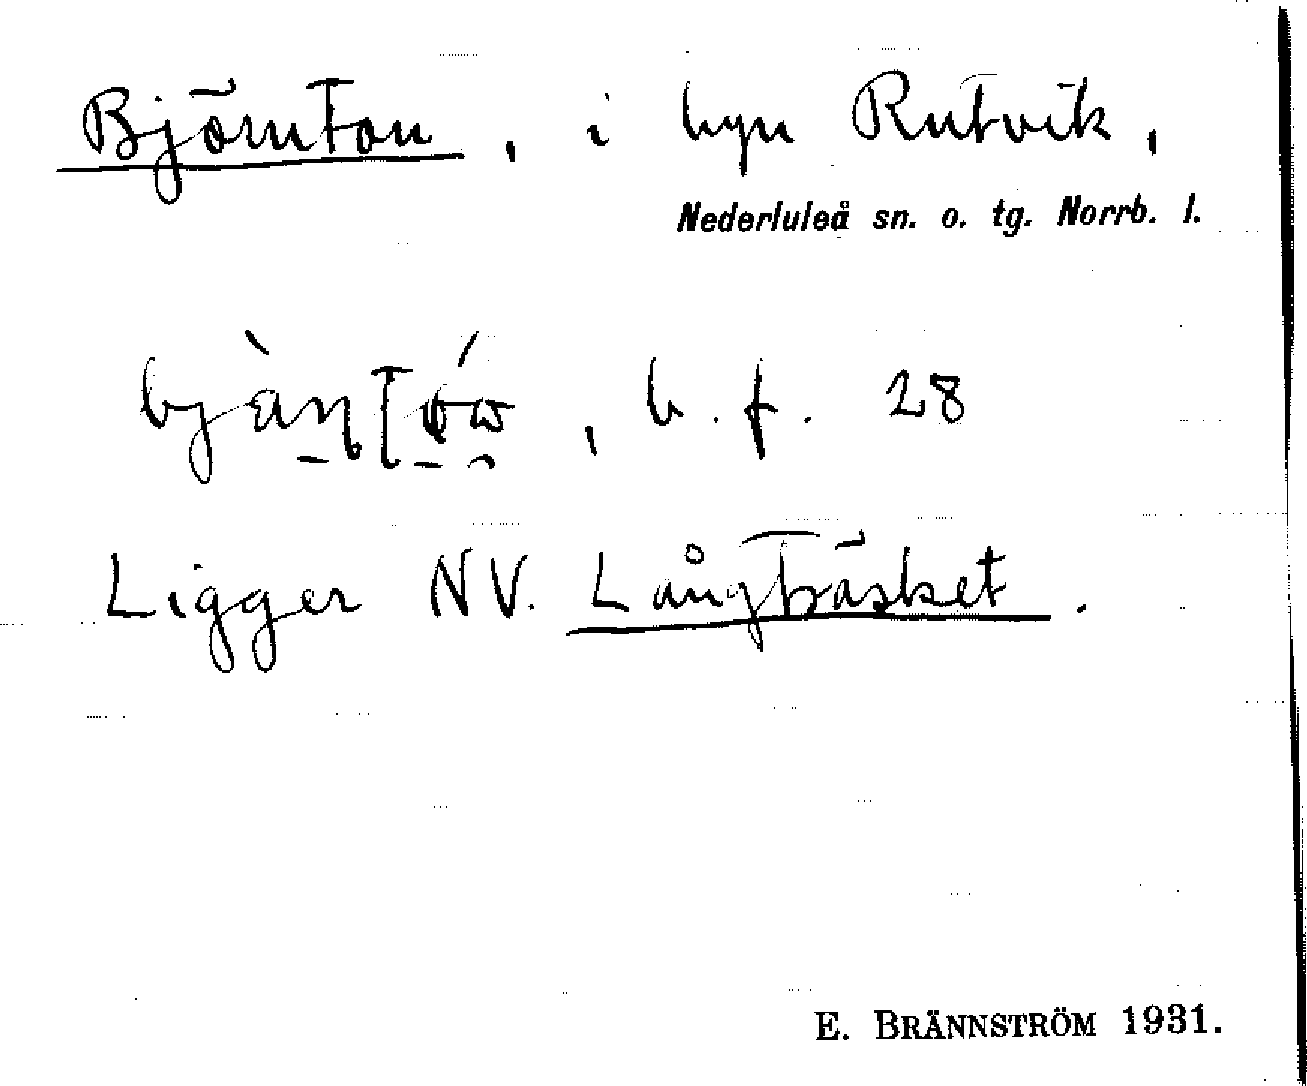 Björnton, i byn Rutvik,
Nederluleå sn. o. tg. Norrb. l.
, b. f. 28
Ligger NV. Långträsket.
E. BRÄNNSTRÖM 1931.